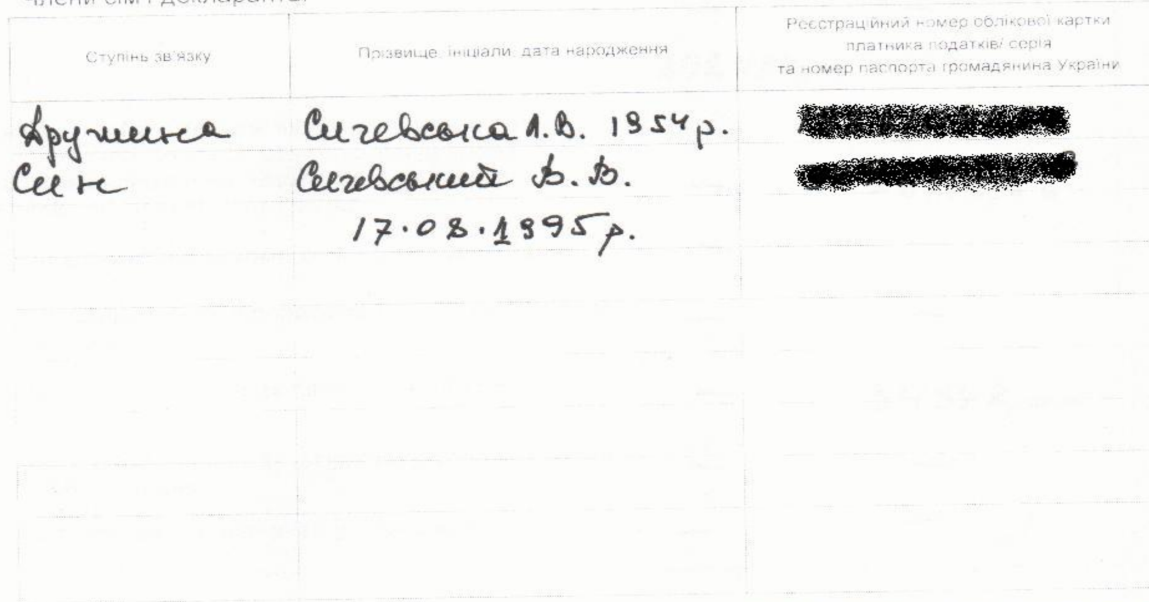 Члени сім'ї декларанта:
Ступінь зв'язку
Прізвище, ініціали, дата народження
Реєстраційний номер облікової картки
платника податків/ серія
та номер паспорта громадянина України
Дружина Сичевська Л.В. 1954 р.
Син Сичевський В. В.
17.08.1995 р.